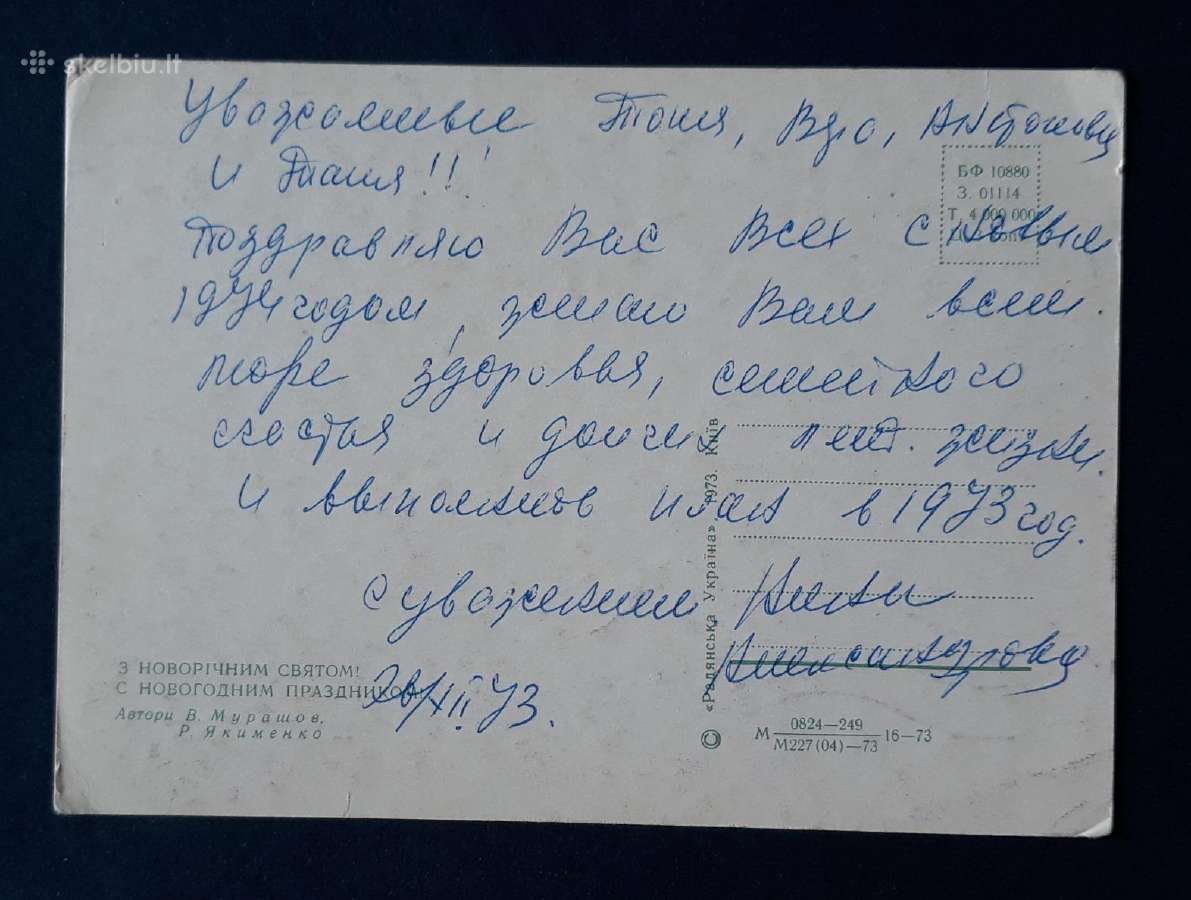 skelbiu.lt
Уважаемые Тоня, , Антоновц
и Таня!!
БФ 10880
З. 01114
Т. 4 000 000
Поздравляю Вас Всех с Новым
1974 годом, желаю Вам всем
море здоровья, семейного
счастья и долгих лет. жизни.
и выполнить план в 1973 год.
с уважением
Александрова
26/XII 73.
З НОВОРІЧНИМ СВЯТОМ!
С НОВОГОДНИМ ПРАЗДНИКОМ!
Автори В. Мурашов,
Р. Якименко
«Радянська Україна», 1973. Київ
©
М 0824—249 16—73
М227(04)—73